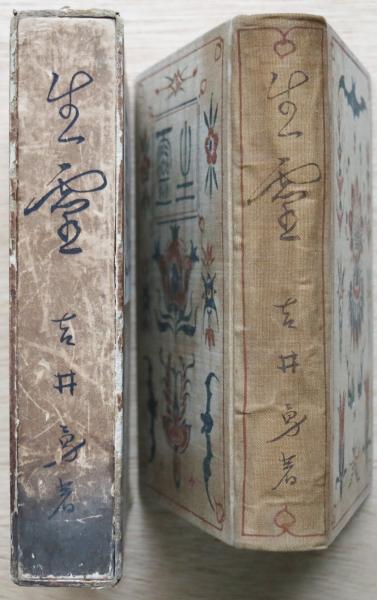 生霊
吉井勇著
生霊
吉井勇著